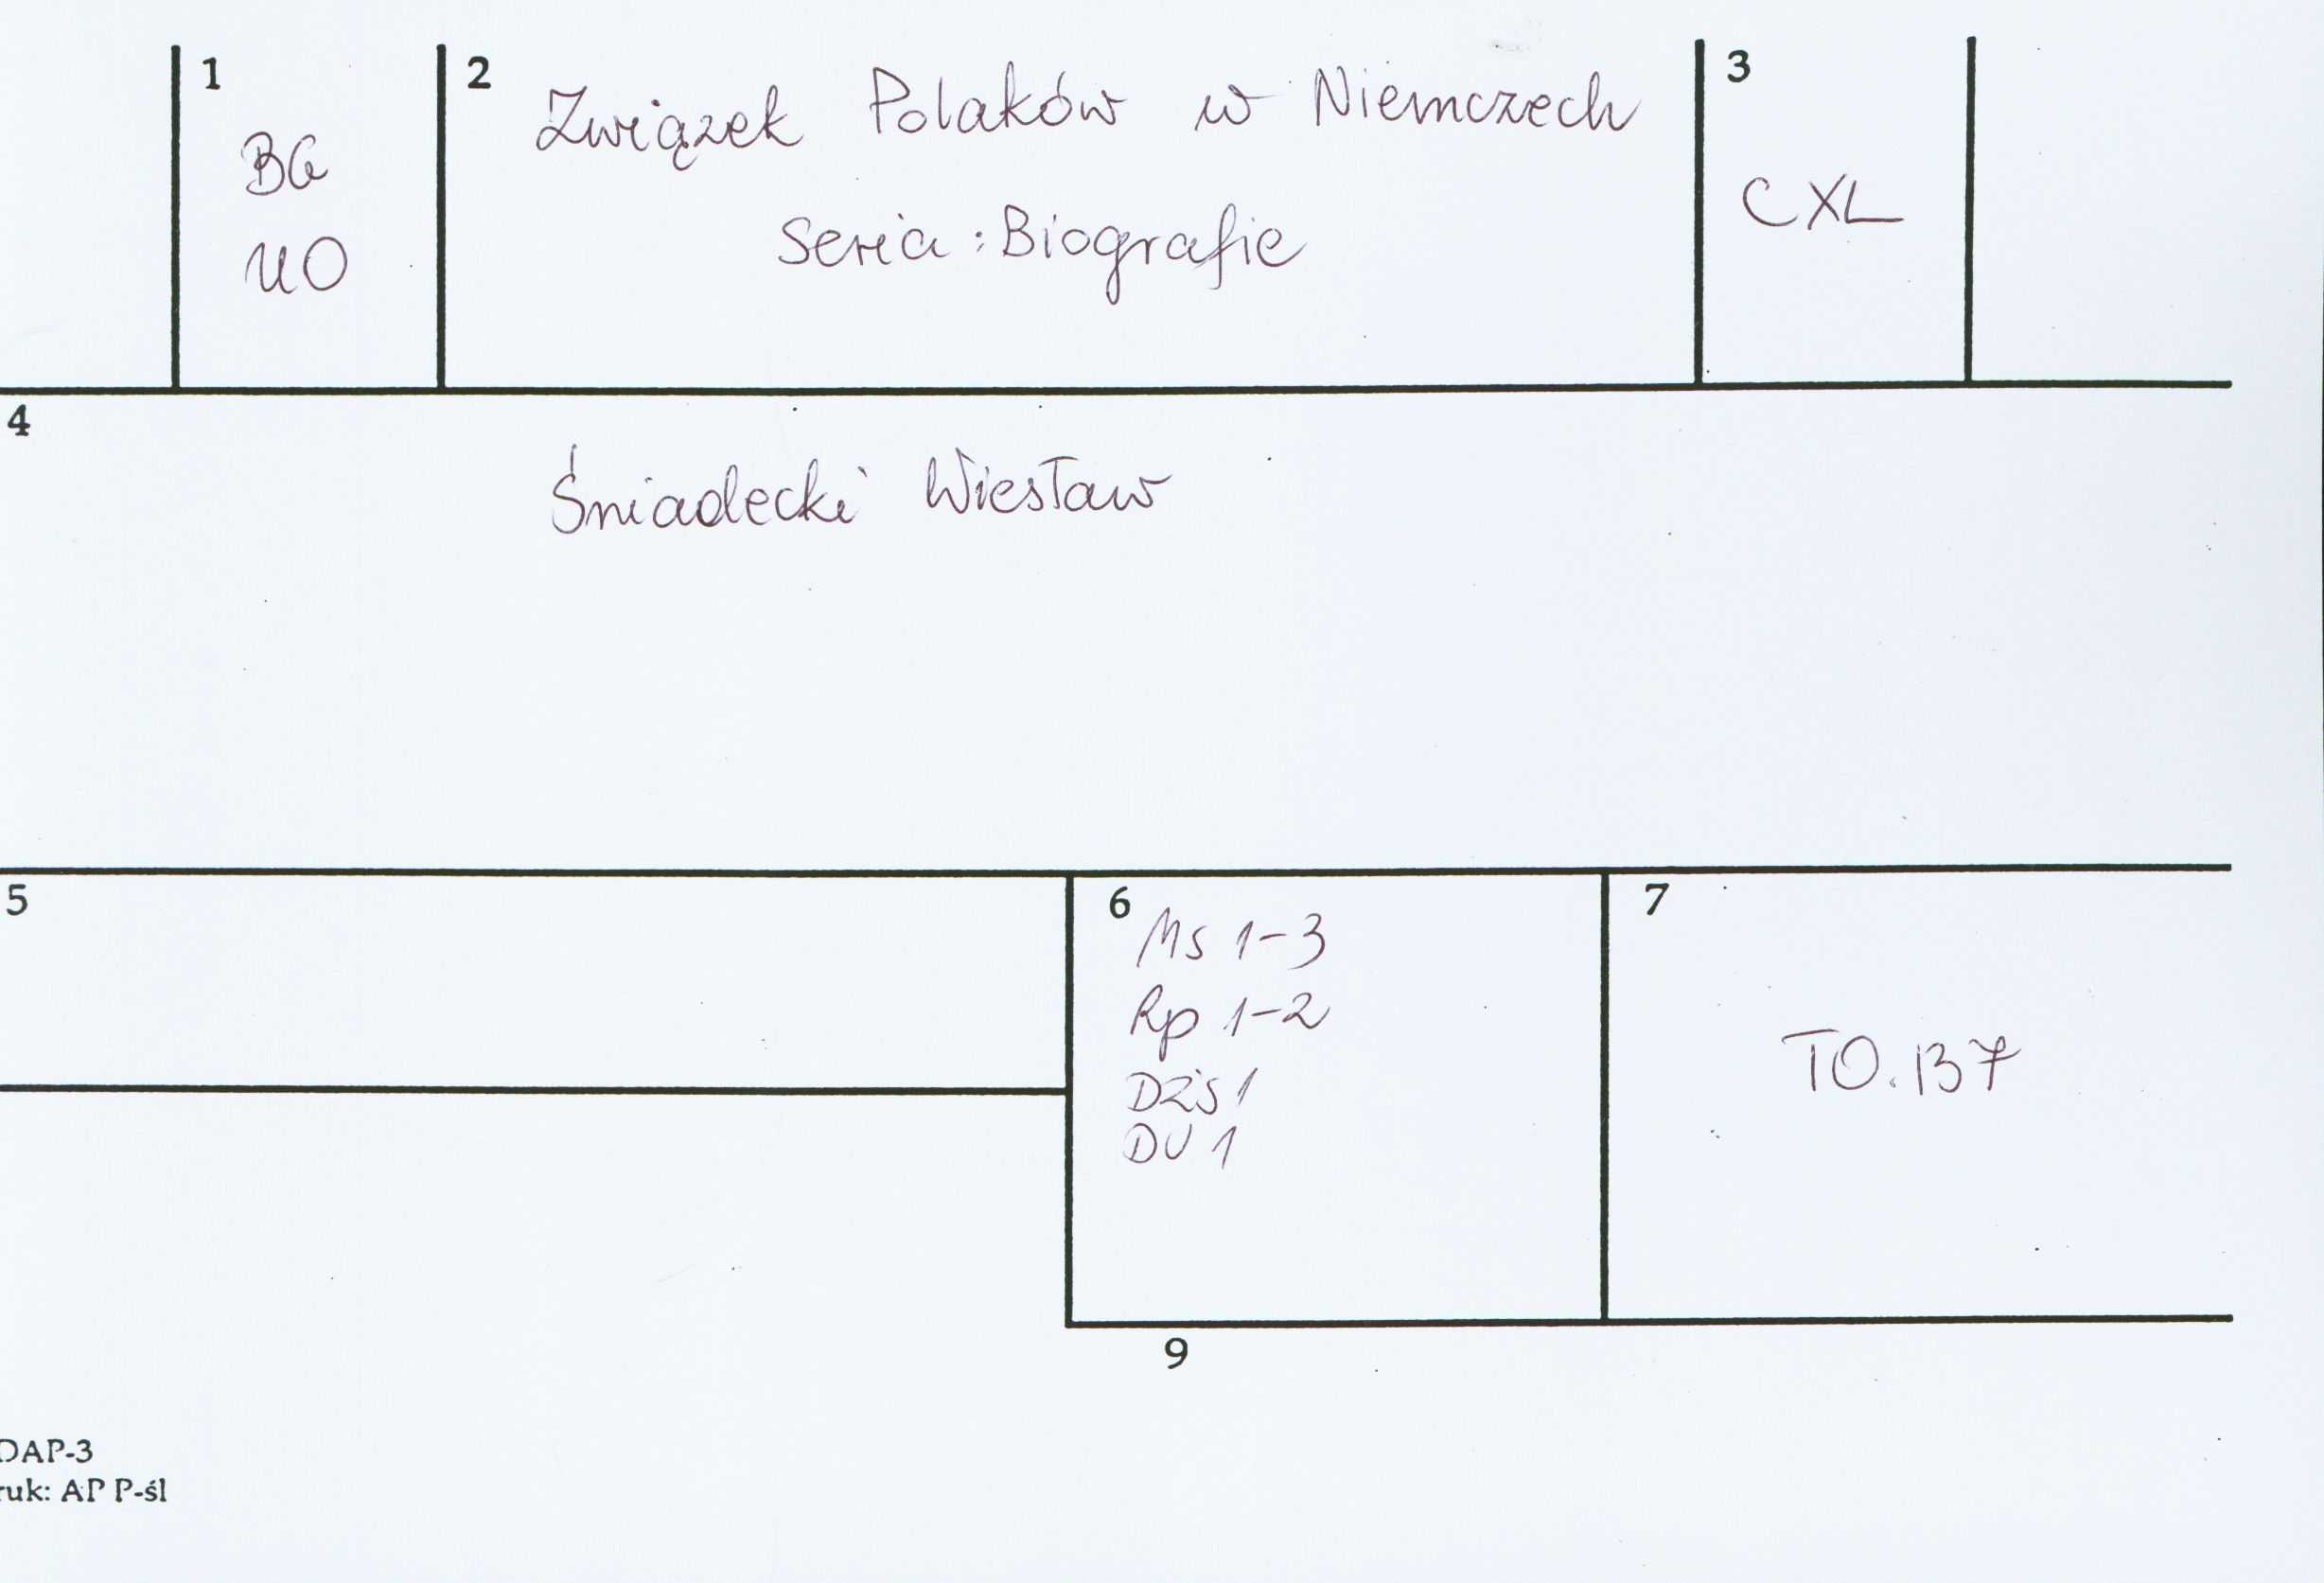 1
BG
UO
2
Związek Polaków w Niemczech
Seria: Biografie
3
CXL
4
Śniadecki Wiesław
5
6
Ms 1-3
Rp 1-2
Dżs 1
DU 1
7
TO.137
9
DAP-3
ruk: AP P-śl